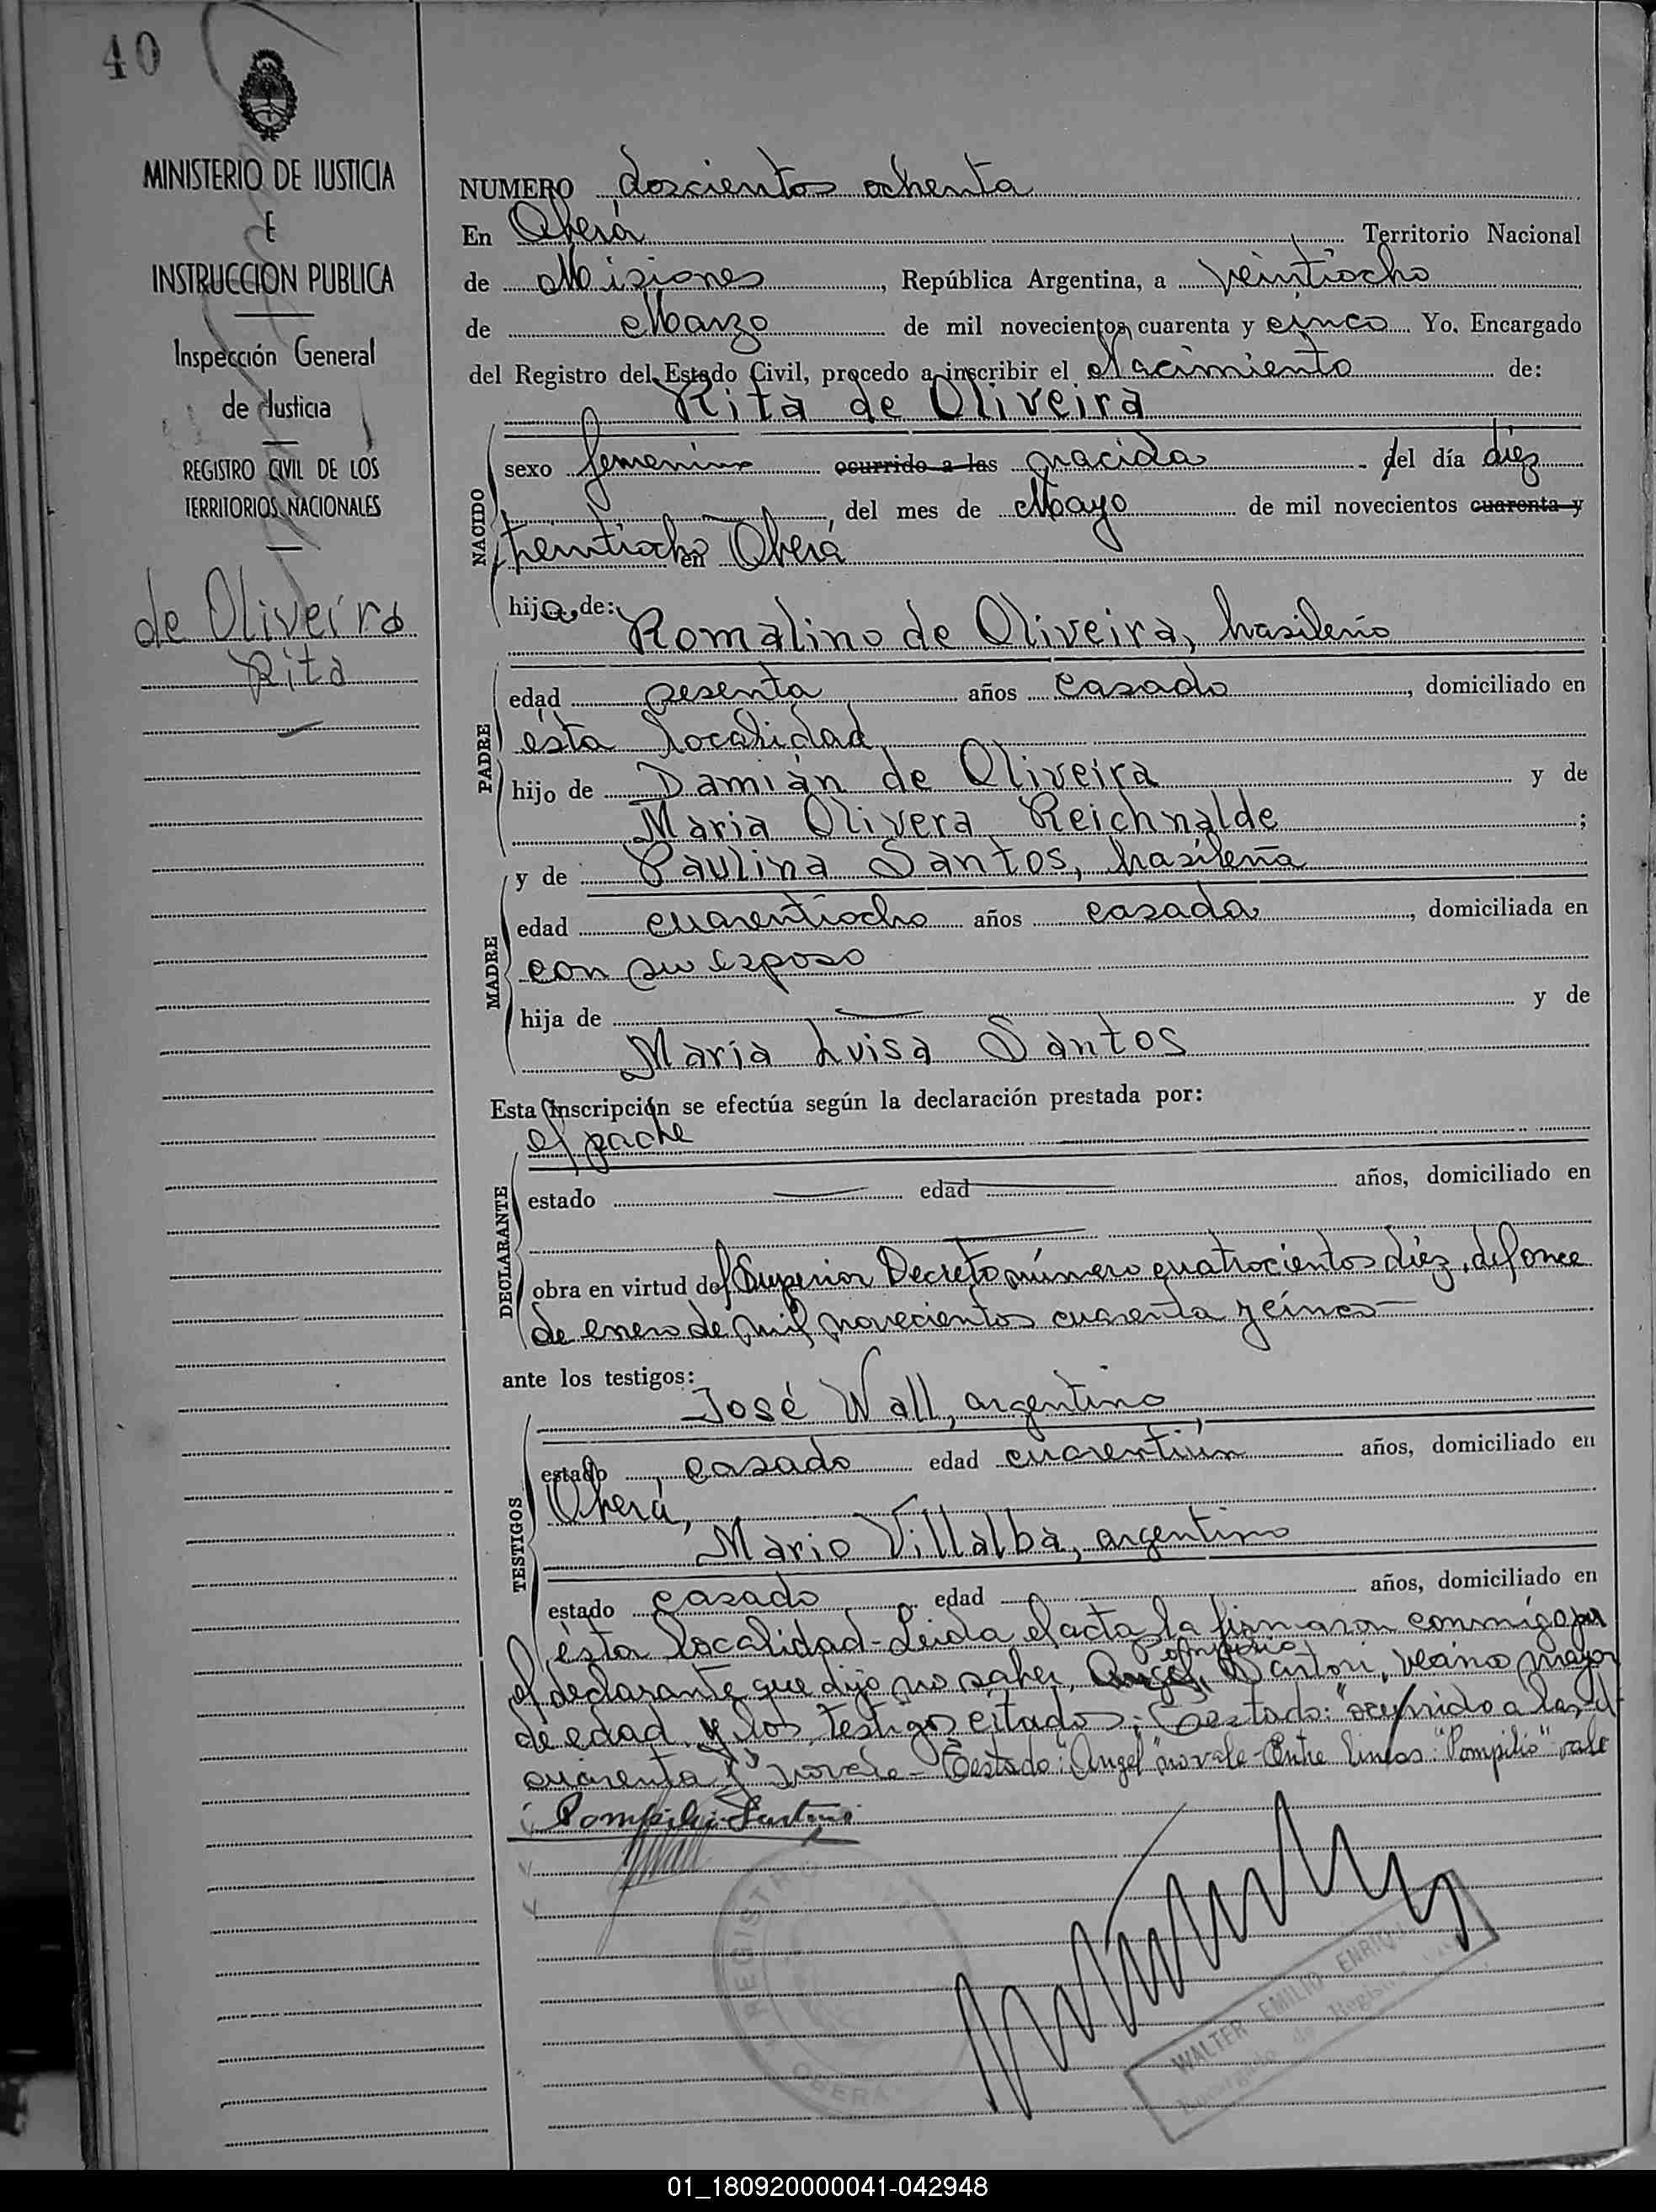 40
MINISTERIO DE JUSTICIA
E
INSTRUCCION PUBLICA
Inspección General
de Justicia
REGISTRO CIVIL DE LOS
TERRITORIOS NACIONALES
de Oliveira
Rita
NUMERO doscientos ochenta
En Oberá Territorio Nacional
de Misiones, República Argentina, a veintiocho
de Marzo de mil novecientos cuarenta y cinco Yo. Encargado
del Registro del Estado Civil, procedo a inscribir el Nacimiento de:
Rita de Oliveira
NACIDO
sexo femenino ocurrido a las nacida del día diez
, del mes de Mayo de mil novecientos cuarenta y
treintiocho en Oberá
hija de:
Romalino de Oliveira, brasileño
PADRE
edad sesenta años casado, domiciliado en
ésta localidad,
hijo de Damián de Oliveira y de
Maria Olivera Reichnalde;
y de Paulina Santos, brasileña
MADRE
edad cuarentiocho años casada, domiciliada en
con su esposo
hija de — y de
María Luisa Santos
Esta inscripción se efectúa según la declaración prestada por:
el padre
DECLARANTE
estado — edad — años, domiciliado en
obra en virtud del Superior Decreto número cuatrocientos diez, del once
de enero de mil novecientos cuarenta y cinco—
ante los testigos:
José Wall, argentino,
TESTIGOS
estado casado edad cuarentiún años, domiciliado en
Oberá,
Mario Villalba, argentino
estado casado edad años, domiciliado en
ésta localidad-Leida el acta la firmaron conmigo por
Pompilio
el declarante que dijo no saber, Angel Santori, vecino mayor
de edad y los testigos citados; Testado: "ocurrido a las-d-
cuarenta y" no vale- Testado: "Angel" no vale-Entre lineas: "Pompilio" vale
Pompilio Santori
REGISTRO
OBERÁ
WALTER EMILIO ENRIQU
Encargado de Registro
01_180920000041-042948